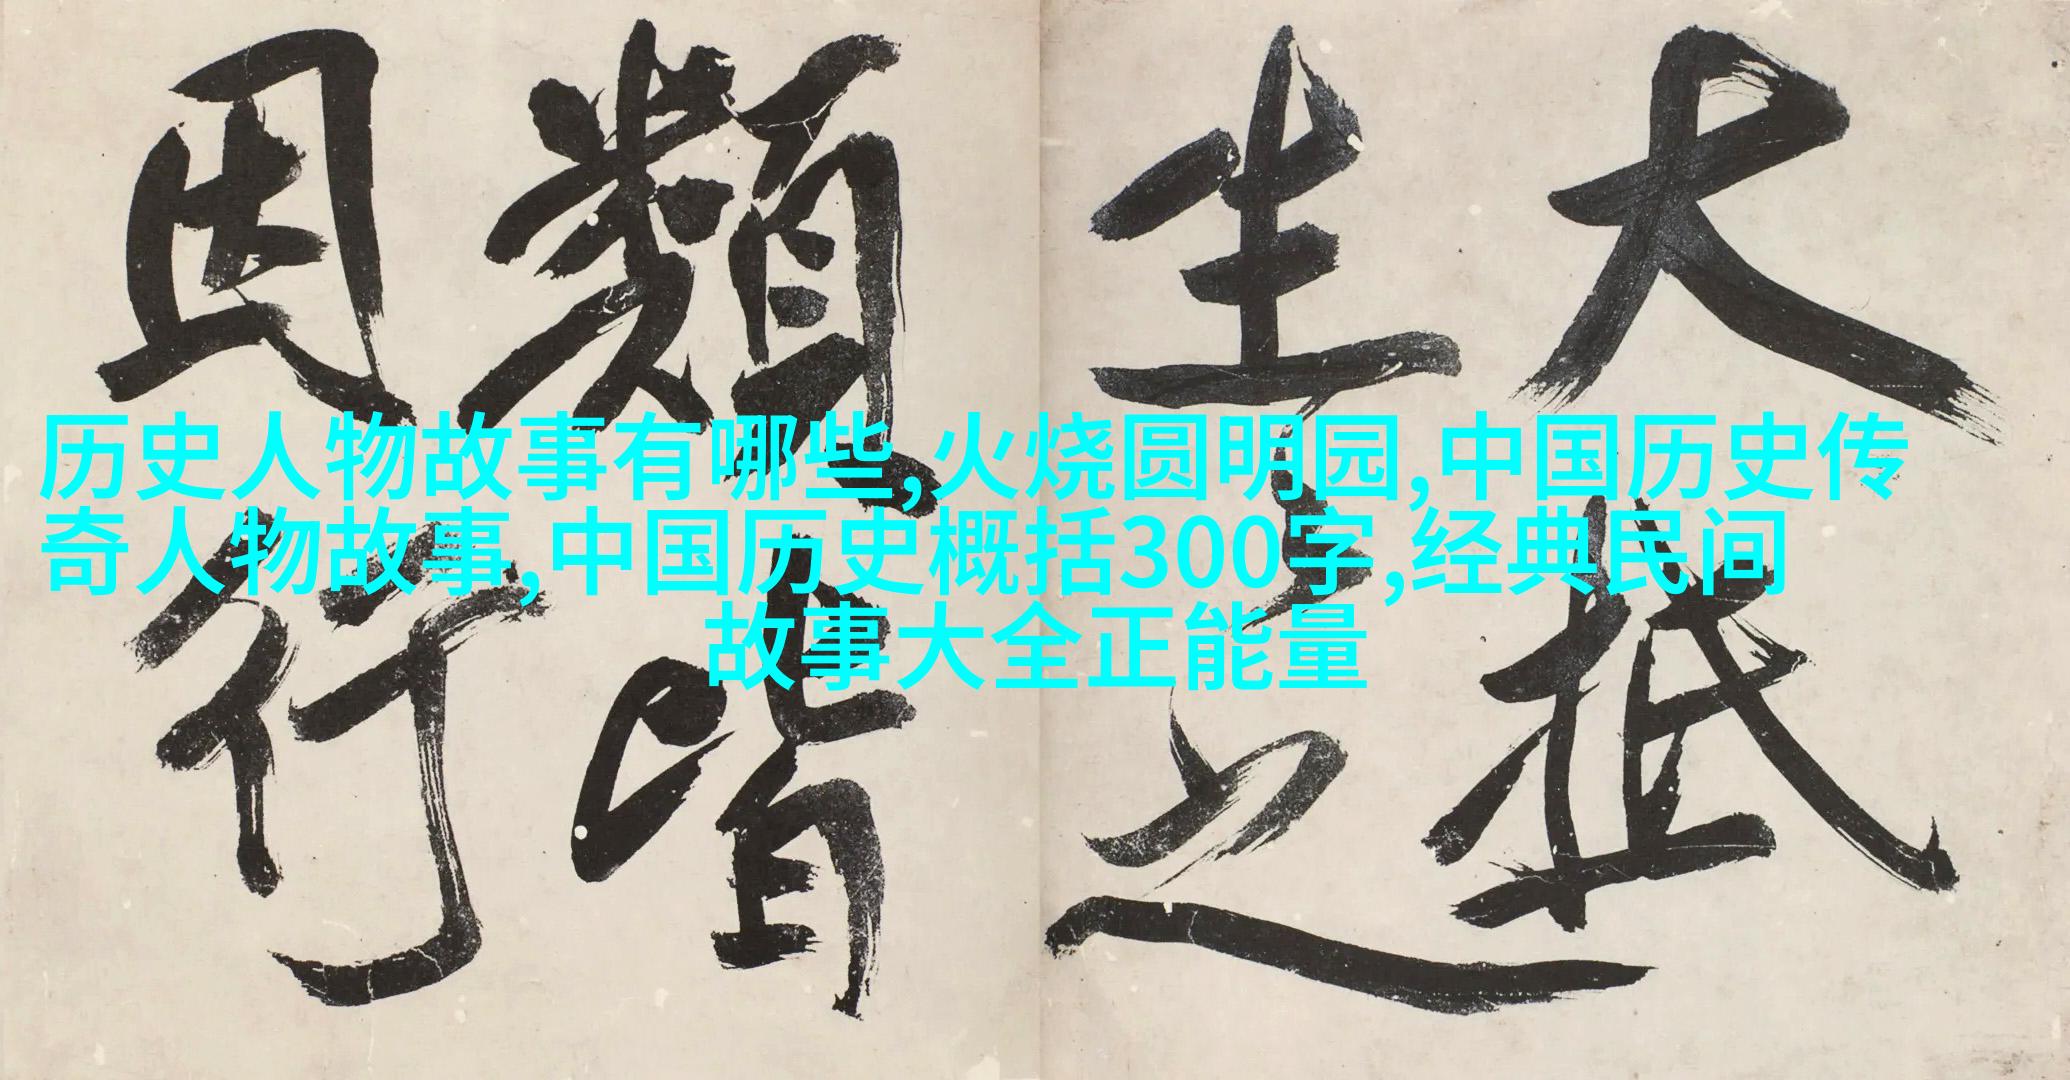 历史人物故事有哪些,火烧圆明园,中国历史传
奇人物故事,中国历史概括300字,经典民间
故事大全正能量
大抵
生之
類皆
因行